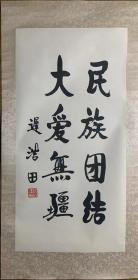 民族团结
大爱无疆
迟浩田